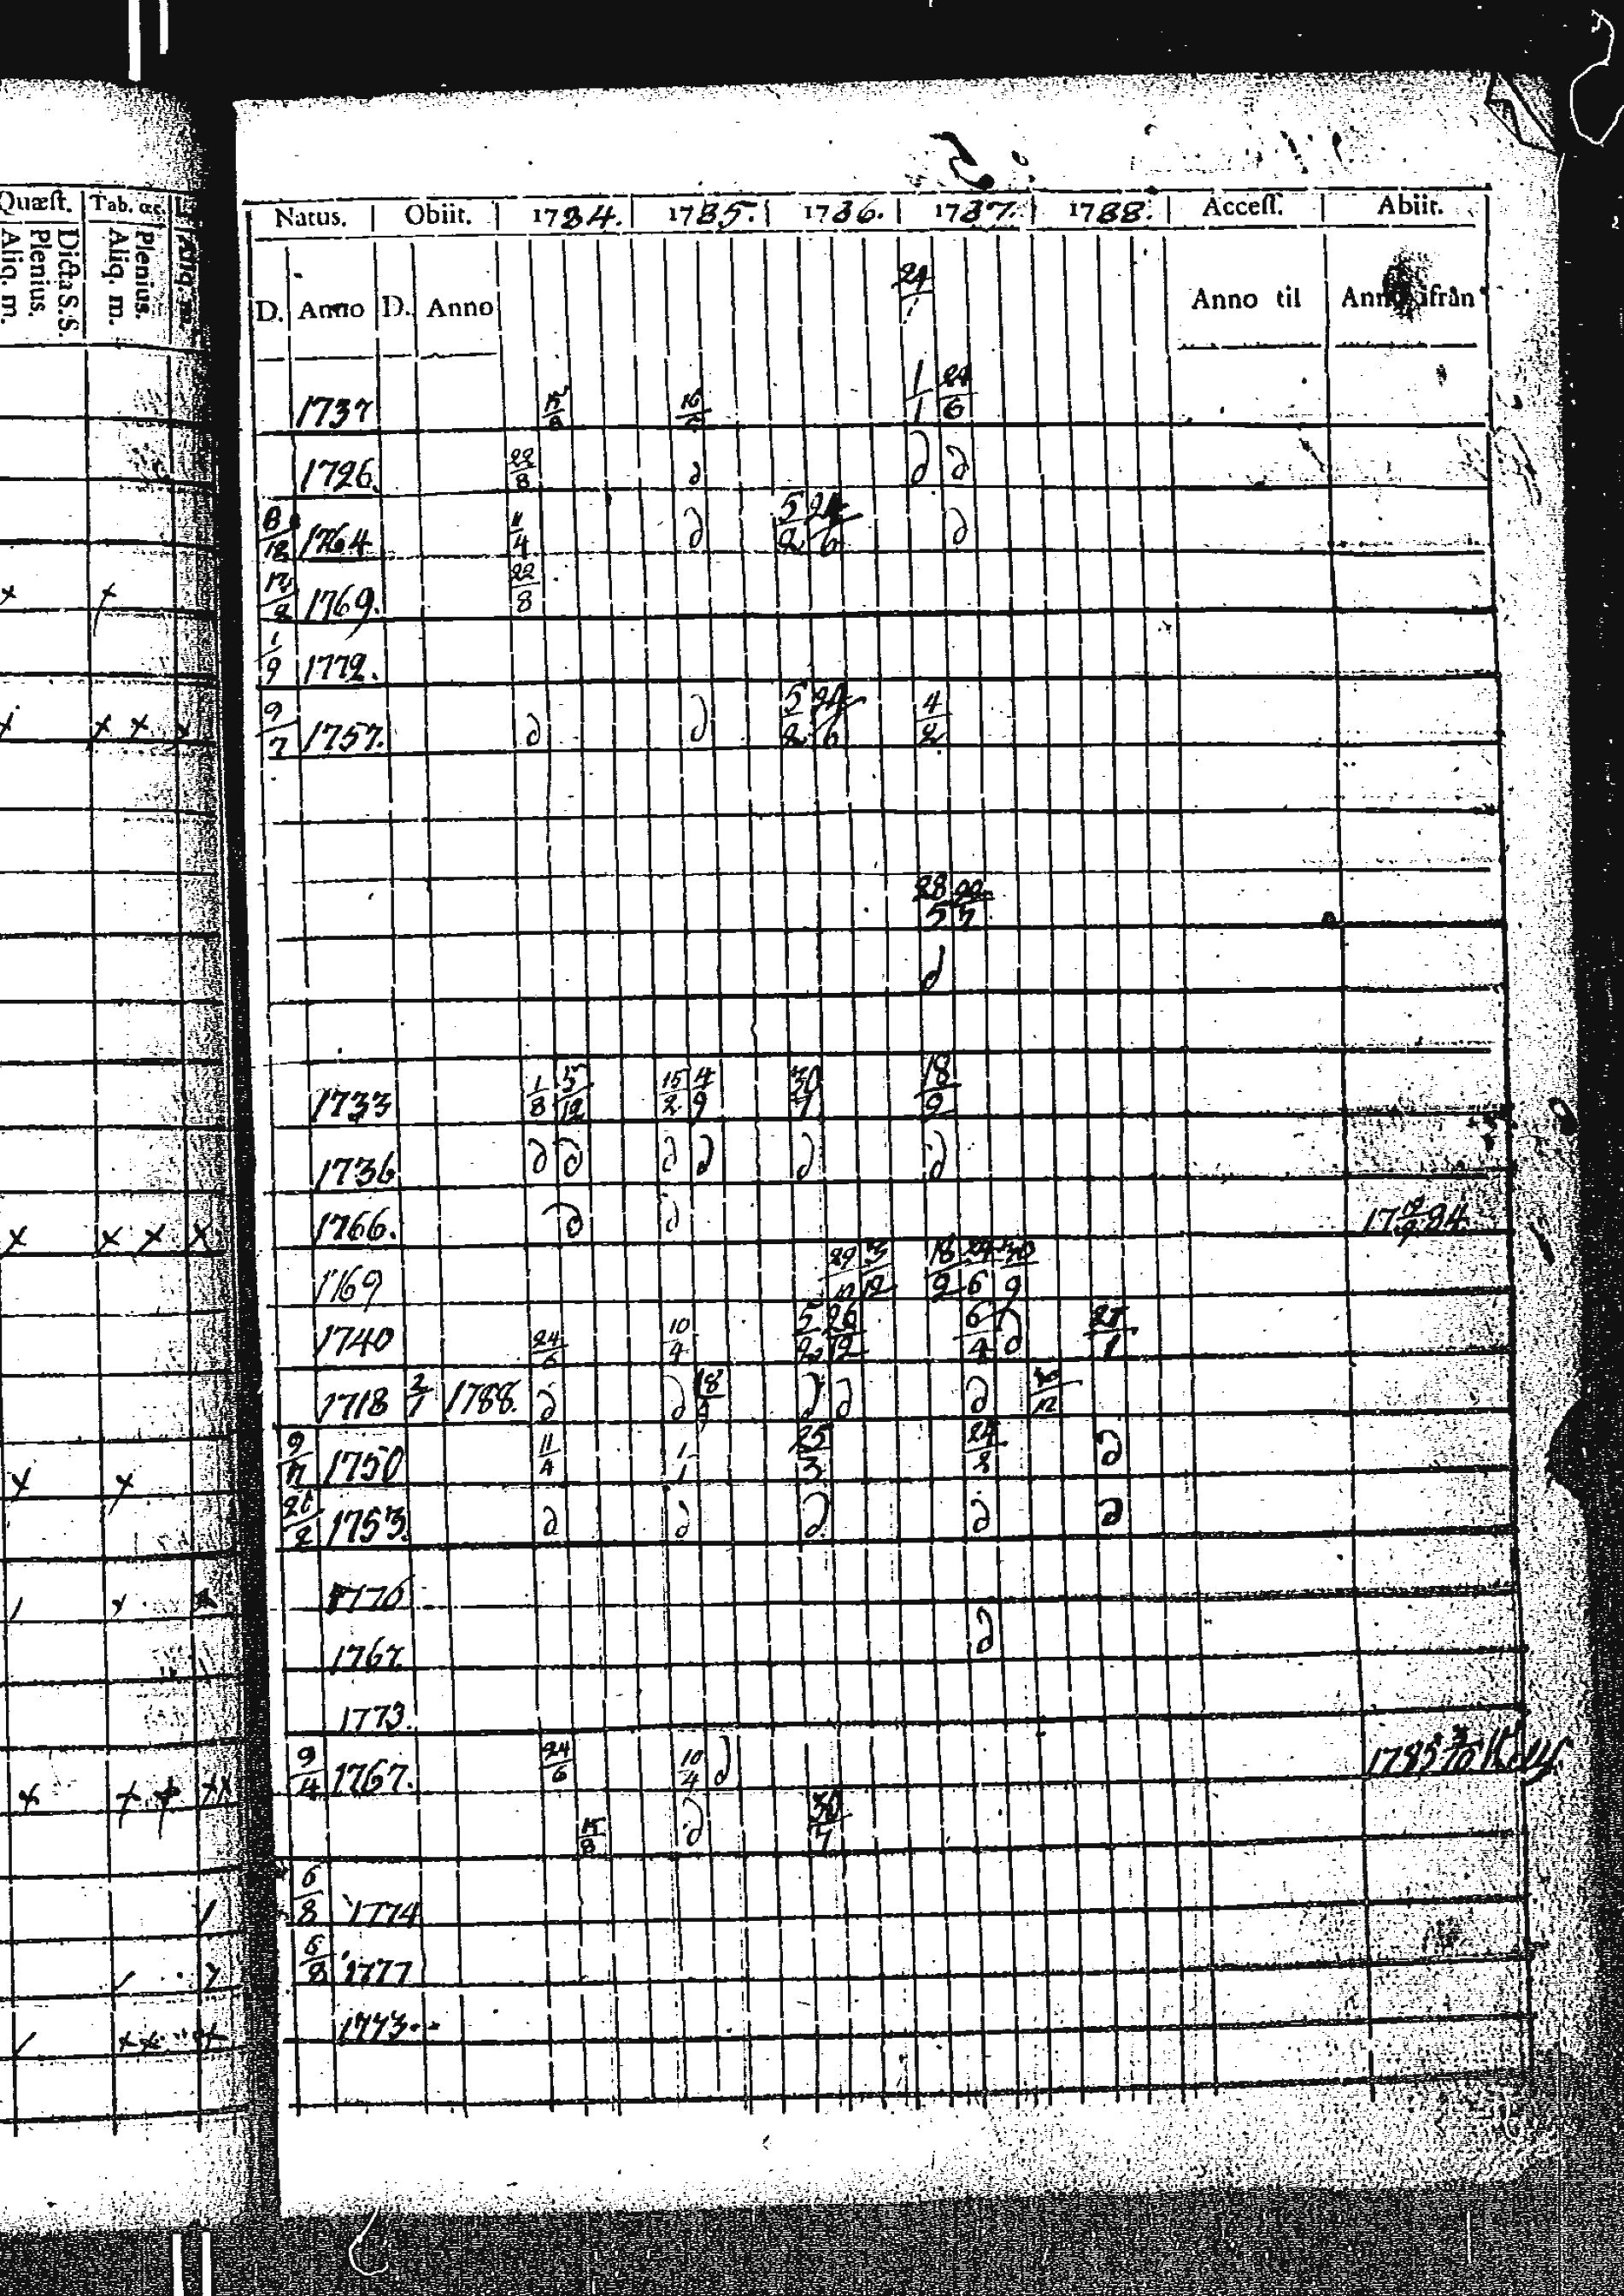 5
Quæſt. Tab. &c.
Dicta S.S. Plenius. Aliq. m. Plenius. Aliq. m. Aliq. m.
Natus. Obiit. 1784. 1785. 1786. 1787. 1788. Acceſſ. Abiit.
D. Anno D. Anno 24/1 Anno til Anno ifrån
1737 15/8 1/1 24/6
1726. 22/8 ∂ ∂ ∂
8/12 1764 11/4 ∂ 5/2 24/6 ∂
x x 12/8 1769. 22/8
1/9 1772.
x x x x 9/7 1757. ∂ ∂ 5/2 24/6 4/2
28/5 22/7
∂
1733 1/8 5/12 15/2 4/9 30/7 18/2
1736 ∂ ∂ ∂ ∂ ∂ ∂
x x x x 1766. ∂ ∂
1769 3/12 18/2 24/6 30/9
1740 24/6 10/4 5/2 26/12 6/4 ∂
1718 2/1 1788. ∂ ∂ 18/9 ∂ ∂ ∂ 30/12
x x 1750 11/4 1/1 25/3 24/2 ∂
1753. ∂ ∂ ∂ ∂ ∂
1770
1767. ∂
1773.
x x x x x 9/4 1767. 24/6 10/4 ∂ 1785
15/8 ∂ 30/7
6/8 1774
6/8 1777
x x 1773